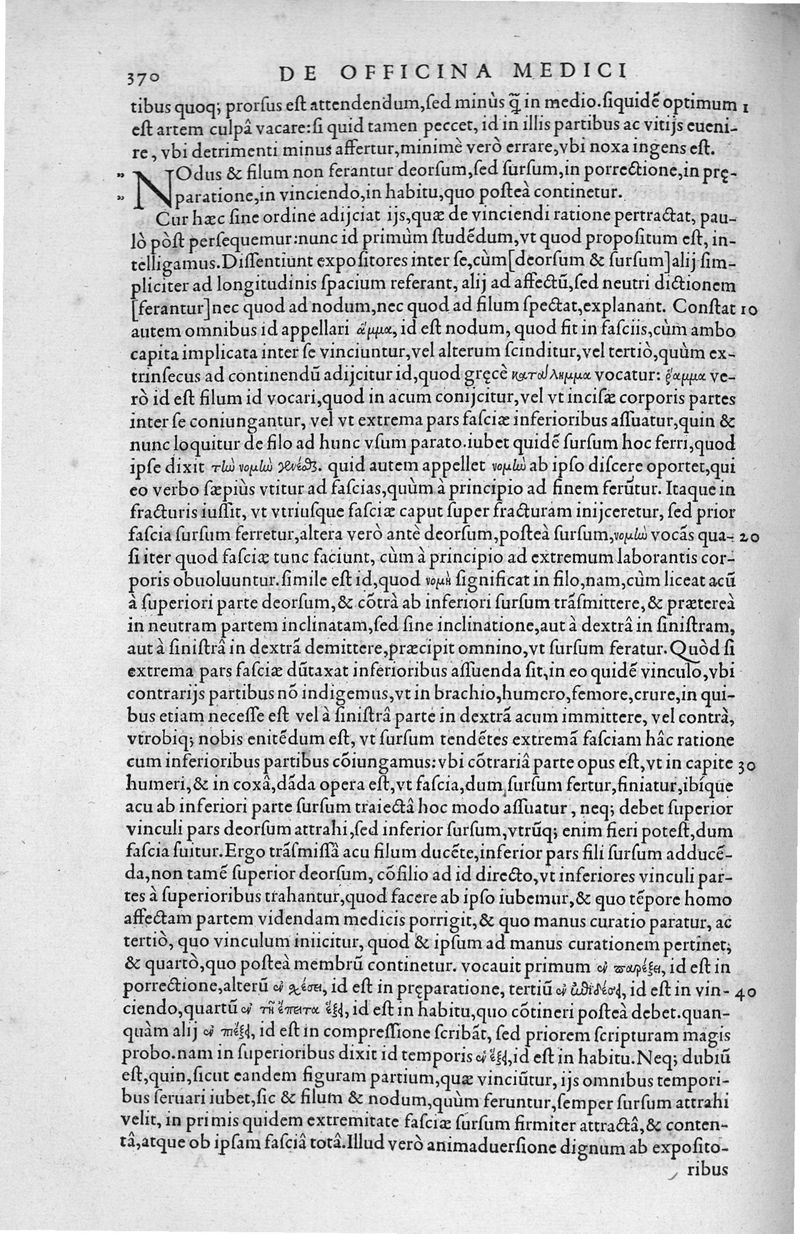 370 DE OFFICINA MEDICI
tibus quoq; prorſus eſt attendendum,ſed minùs q̃ in medio.ſiquidẽ optimum 1
eſt artem culpâ vacare:ſi quid tamen peccet, id in illis partibus ac vitijs eueni-
re, vbi detrimenti minus affertur,minimè verò errare,vbi noxa ingens eſt.
" NOdus & filum non ferantur deorſum,ſed ſurſum,in porrectione,in prę-
" paratione,in vinciendo,in habitu,quo poſteà continetur.
Cur hæc ſine ordine adijciat ijs,quæ de vinciendi ratione pertractat, pau-
lò pòſt perſequemur:nunc id primùm ſtudẽdum,vt quod propoſitum eſt, in-
telligamus.Diſſentiunt expoſitores inter ſe,cùm[deorſum & ſurſum]alij ſim-
pliciter ad longitudinis ſpacium referant, alij ad affectũ,ſed neutri dictionem
[ferantur]nec quod ad nodum,nec quod ad filum ſpectat,explanant. Conſtat 10
autem omnibus id appellari ἅμμα, id eſt nodum, quod fit in faſciis,cùm ambo
capita implicata inter ſe vinciuntur,vel alterum ſcinditur,vel tertiò,quùm ex-
trinſecus ad continendũ adijcitur id,quod gręcè κατάλημμα vocatur: ῥάμμα ve-
rò id eſt filum id vocari,quod in acum conijcitur,vel vt inciſæ corporis partes
inter ſe coniungantur, vel vt extrema pars faſciæ inferioribus aſſuatur,quin &
nunc loquitur de filo ad hunc vſum parato.iubet quidẽ ſurſum hoc ferri,quod
ipſe dixit τὴν νομὴν . quid autem appellet νομὴν ab ipſo diſcere oportet,qui
eo verbo ſæpiùs vtitur ad faſcias,quùm à principio ad finem ferũtur. Itaque in
fracturis iuſſit, vt vtriuſque faſciæ caput ſuper fracturam inijceretur, ſed prior
faſcia ſurſum ferretur,altera verò antè deorſum,poſteà ſurſum,νομὴν vocãs qua- 20
ſi iter quod faſciæ tunc faciunt, cùm à principio ad extremum laborantis cor-
poris obuoluuntur.ſimile eſt id,quod νομὴ ſignificat in filo,nam,cùm liceat acũ
à ſuperiori parte deorſum,& cõtrà ab inferiori ſurſum trãſmittere,& prætereà
in neutram partem inclinatam,ſed ſine inclinatione,aut à dextrâ in ſiniſtram,
aut à ſiniſtrâ in dextrã demittere,præcipit omnino,vt ſurſum feratur.Quòd ſi
extrema pars faſciæ dũtaxat inferioribus aſſuenda ſit,in eo quidẽ vinculo,vbi
contrarijs partibus nõ indigemus,vt in brachio,humero,femore,crure,in qui-
bus etiam neceſſe eſt vel à ſiniſtrâ parte in dextrã acum immittere, vel contrà,
vtrobiq; nobis enitẽdum eſt, vt ſurſum tendẽtes extremã faſciam hâc ratione
cum inferioribus partibus cõiungamus:vbi cõtrariâ parte opus eſt,vt in capite 30
humeri,& in coxâ,dãda opera eſt,vt faſcia,dum ſurſum fertur,finiatur,ibíque
acu ab inferiori parte ſurſum traiectâ hoc modo aſſuatur, neq; debet ſuperior
vinculi pars deorſum attrahi,ſed inferior ſurſum,vtrũq; enim fieri poteſt,dum
faſcia ſuitur.Ergo trãſmiſſâ acu filum ducẽte,inferior pars fili ſurſum adducẽ-
da,non tamẽ ſuperior deorſum, cõſilio ad id directo,vt inferiores vinculi par-
tes à ſuperioribus trahantur,quod facere ab ipſo iubemur,& quo tẽpore homo
affectam partem videndam medicis porrigit,& quo manus curatio paratur, ac
tertiò, quo vinculum iniicitur, quod & ipſum ad manus curationem pertinet;
& quartò,quo poſteà membrũ continetur. vocauit primum ἐν παρέξει, id eſt in
porrectione,alterũ ἐν , id eſt in pręparatione, tertiũ ἐν ἐπιδέσει, id eſt in vin- 40
ciendo,quartũ ἐν τῇ ἔπειτα ἕξει, id eſt in habitu,quo cõtineri poſteà debet.quan-
quàm alij ἐν πιέξει, id eſt in compreſſione ſcribãt, ſed priorem ſcripturam magis
probo.nam in ſuperioribus dixit id temporis ἐν ἕξει,id eſt in habitu.Neq; dubiũ
eſt,quin,ſicut eandem figuram partium,quæ vinciũtur, ijs omnibus tempori-
bus ſeruari iubet,ſic & filum & nodum,quùm feruntur,ſemper ſurſum attrahi
velit, in primis quidem extremitate faſciæ ſurſum firmiter attractâ,& conten-
tâ,atque ob ipſam faſciâ totâ.Illud verò animaduerſione dignum ab expoſito-
ribus